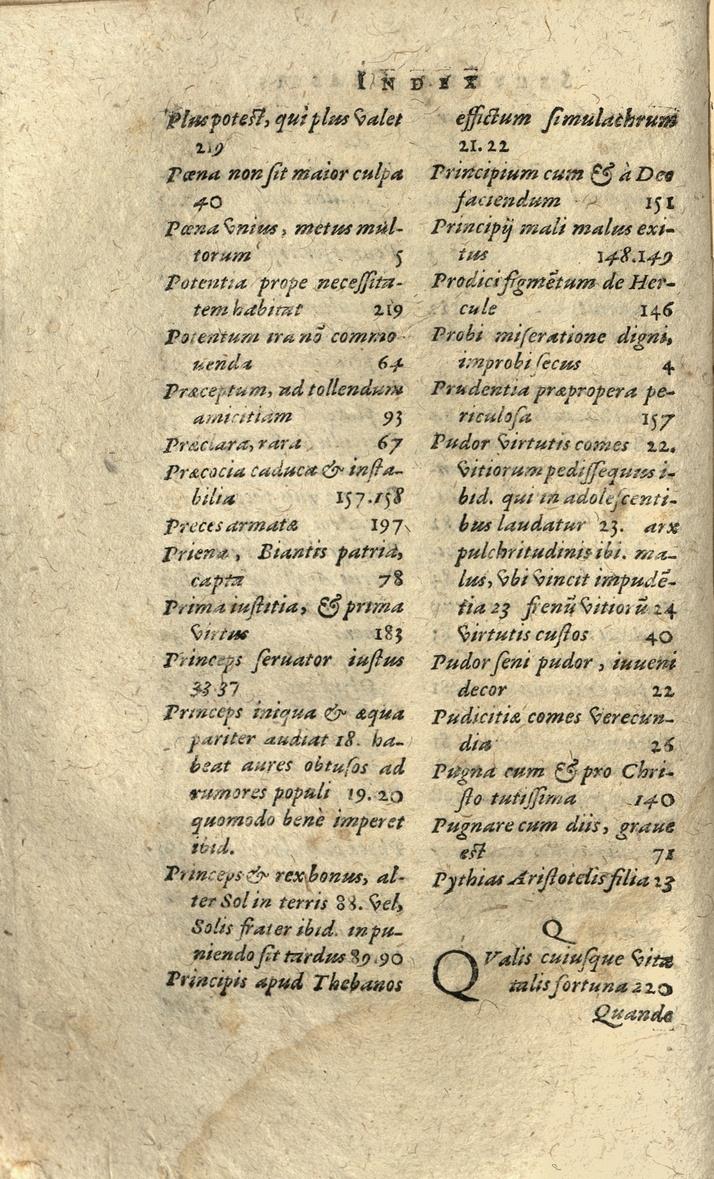 INDEX
Plus potest, qui plus valet
219
Pœna non sit maior culpa
40
Pœna vnius, metus mul-
torum 5
Potentia prope necessita-
tem habitat 219
Potentum ira nō commo
uenda 64
Præceptum, ad tollendum
amicitiam 93
Præclara, rara 67
Præcocia caduca & insta-
bilia 157.158
Preces armatæ 197
Priena, Biantis patria,
capta 78
Prima iustitia, & prima
virtus 183
Princeps seruator iustus
33 37
Princeps iniqua & æqua
pariter audiat 18. ha-
beat aures obtusos ad
rumores populi 19.20
quomodo benè imperet
ibid.
Princeps & rex bonus, al-
ter Sol in terris 88. vel,
Solis frater ibid. in pu-
niendo sit tardus 89.90
Principis apud Thebanos
effictum simulachrum
21.22
Principium cum & à Deo
faciendum 151
Principij mali malus exi-
tus 148.149
Prodici figmētum de Her-
cule 146
Probi miseratione digni,
improbi secus 4
Prudentia præpropera pe-
riculosa 157
Pudor virtutis comes 22.
vitiorum pedissequus i-
bid. qui in adolescenti-
bus laudatur 23. arx
pulchritudinis ibi. ma-
lus, vbi vincit impudē-
tia 23 frenū vitiorū 24
virtutis custos 40
Pudor seni pudor, iuueni
decor 22
Pudicitiæ comes verecun-
dia 26
Pugna cum & pro Chri-
sto tutissima 140
Pugnare cum diis, graue
est 71
Pythias Aristotelis filia 23
Q
QValis cuiusque vita
talis fortuna 220
Quando